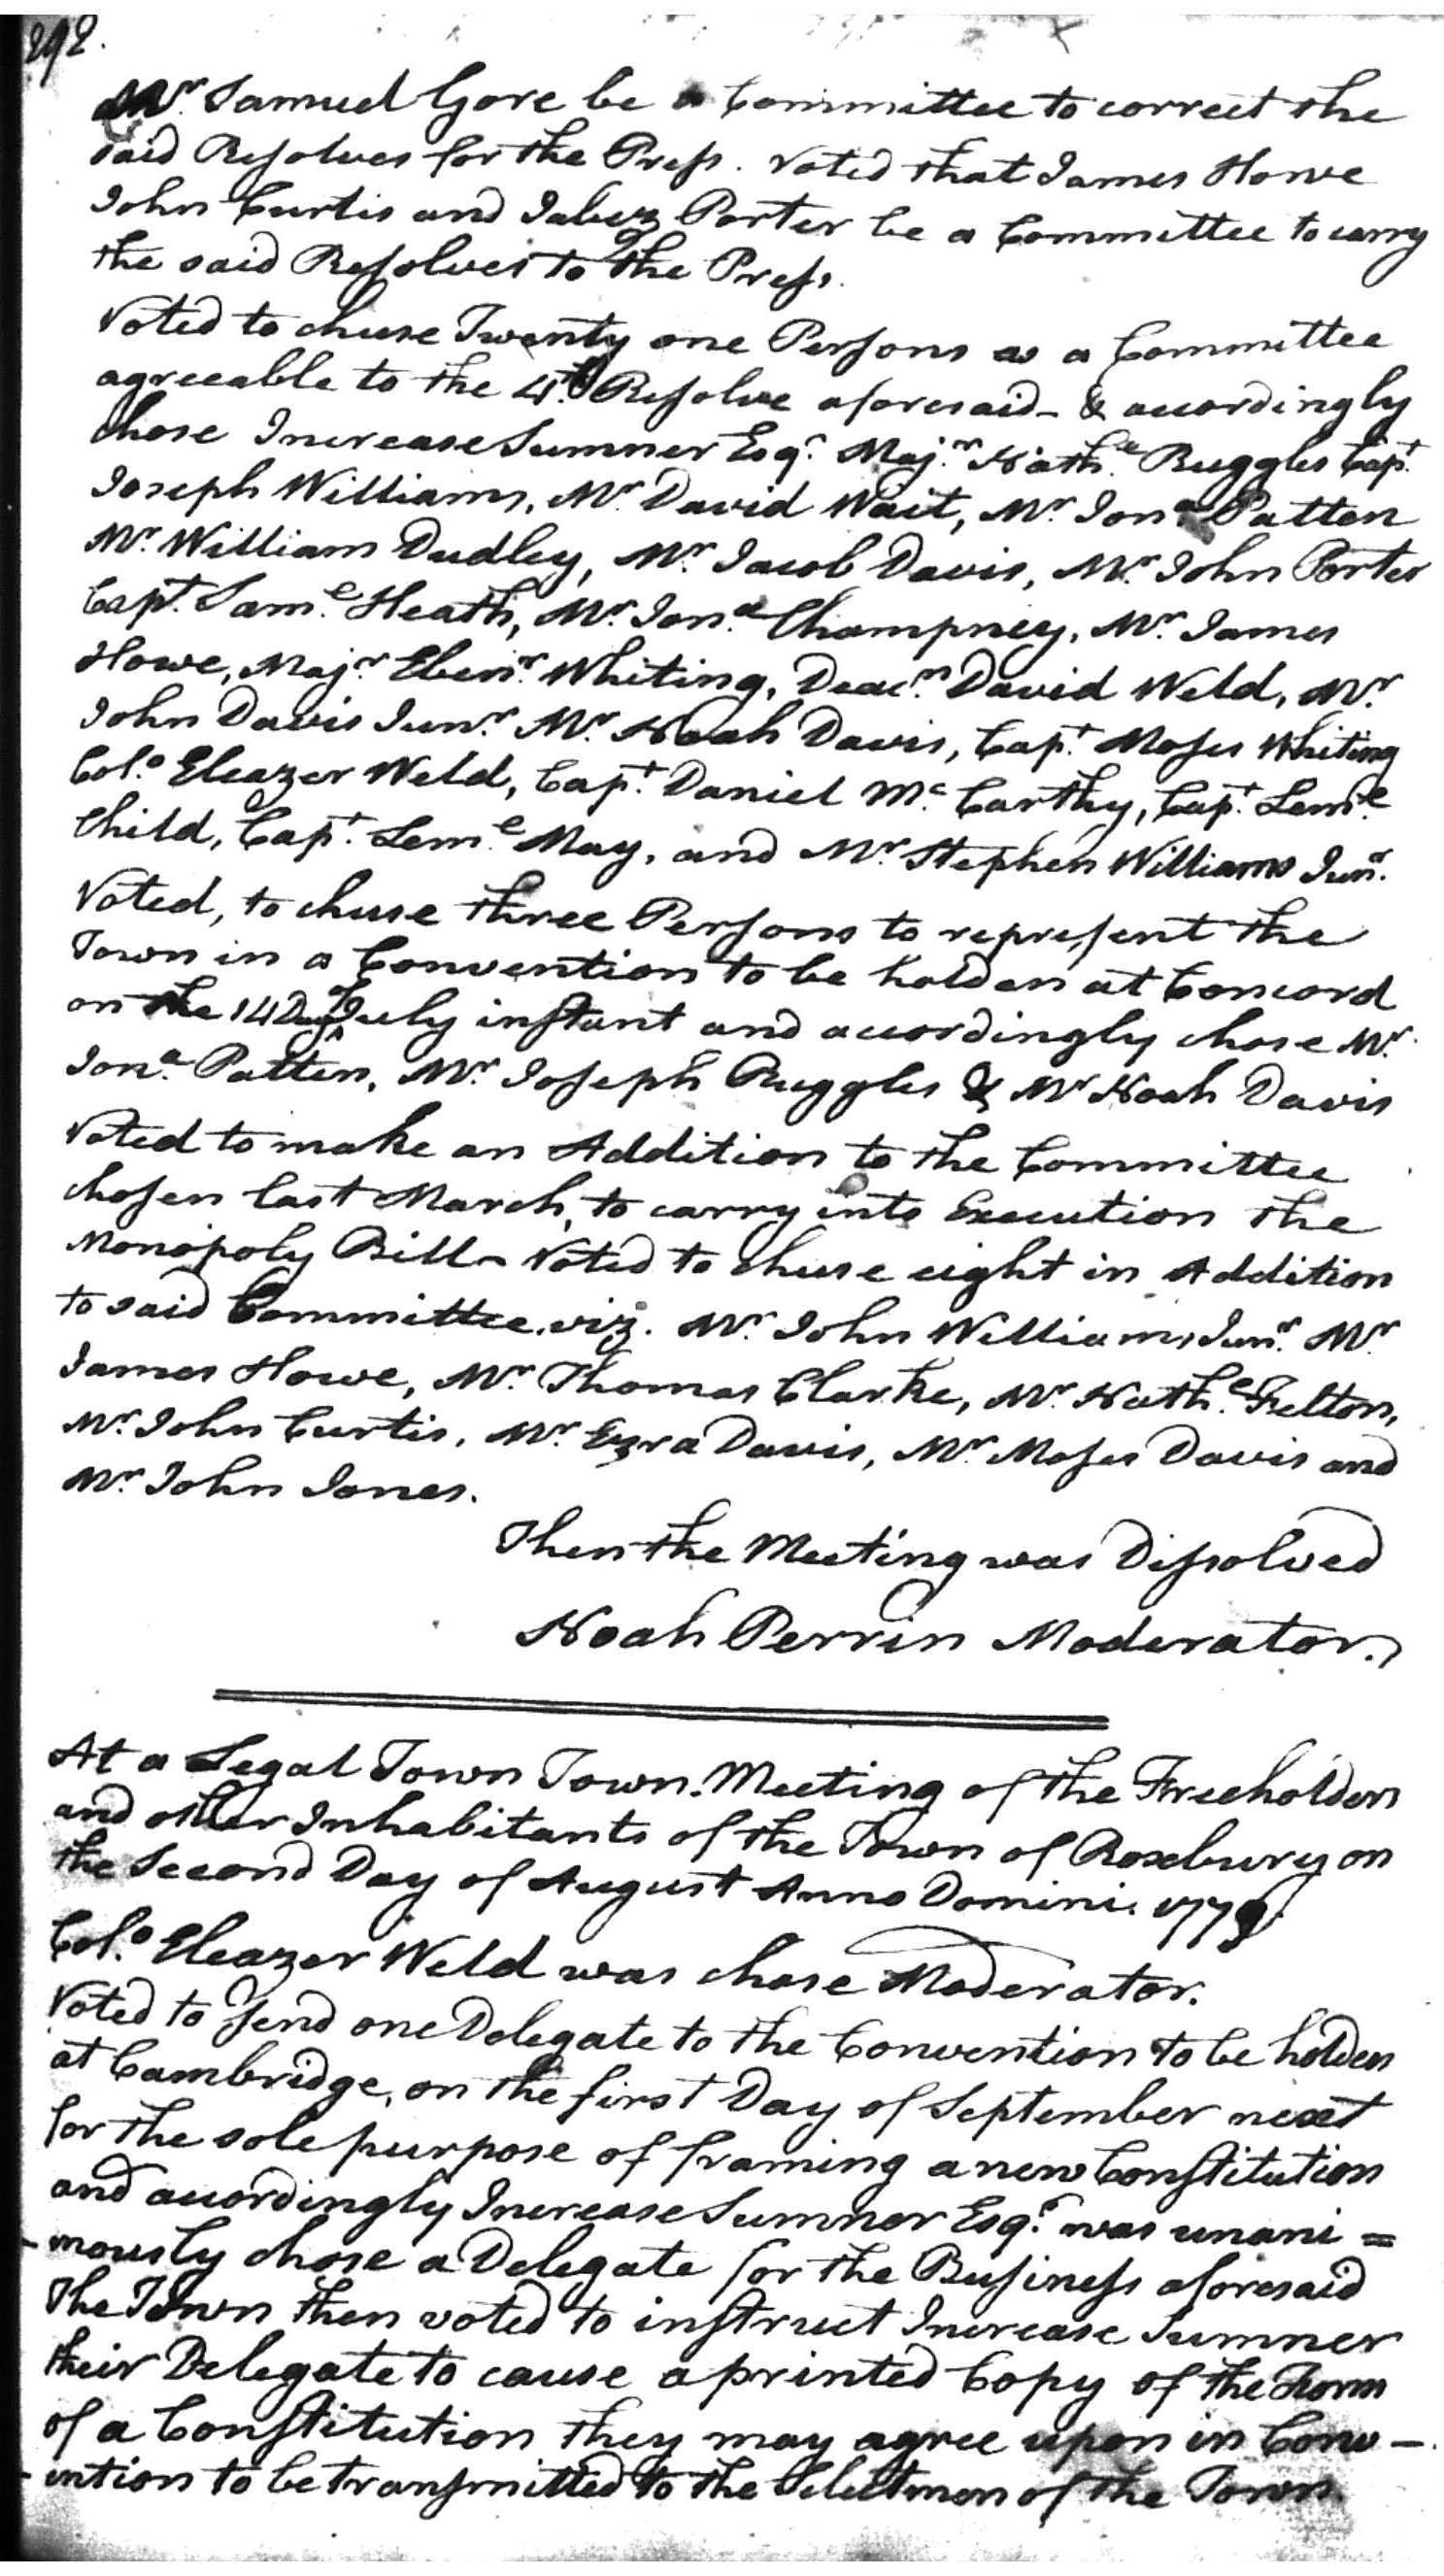 292.
Mr. Samuel Gore be a Committee to correct the
said Resolves for the Press. Voted that James Howe
John Curtis and Jabez Porter be a Committee to carry
the said Resolves to the Press.
Voted to chuse Twenty one Persons as a Committee
agreeable to the 4th. Resolve aforesaid - & accordingly
chose Increase Sumner Esqr. Majr. Nathl. Ruggles Capt.
Joseph Williams, Mr. David Wait, Mr. Jona. Patten
Mr. William Dudley, Mr. Jacob Davis, Mr. John Porter
Capt. Saml. Heath, Mr. Jona. Champney, Mr. James
Howe, Majr. Ebenr. Whiting, Deacn. David Weld, Mr.
John Davis Junr. Mr. Noah Davis, Capt. Moses Whiting
Colo. Eleazer Weld, Capt. Daniel Mc. Carthy, Capt. Leml.
Child, Capt. Leml. May, and Mr. Stephen Williams Junr.
Voted, to chuse three Persons to represent the
Town in a Convention to be holden at Concord
on the 14 Day of July instant and accordingly chose Mr.
Jona. Patten, Mr. Joseph Ruggles & Mr Noah Davis
Voted to make an Addition to the Committee
chosen last March, to carry into Execution the
Monopoly Bill - Voted to chuse eight in Addition
to said Committee, viz. Mr. John Williams Junr. Mr.
James Howe, Mr. Thomas Clarke, Mr. Nathl. Felton,
Mr. John Curtis, Mr. Ezra Davis, Mr. Moses Davis and
Mr. John Jones.
Then the Meeting was Dissolved
Noah Perrin Moderator.
At a Legal Town Town Meeting of the Freeholders
and other Inhabitants of the Town of Roxbury on
the Second Day of August Anno Domini. 1779
Colo. Eleazer Weld was chose Moderator.
Voted to send one Delegate to the Convention to be holden
at Cambridge, on the first Day of September next
for the sole purpose of framing a new Constitution
and accordingly Increase Sumner Esqr. was unani=
-mously chose a Delegate for the Business aforesaid
The Town then voted to instruct Increase Sumner
their Delegate to cause a printed Copy of the Form
of a Constitution they may agree upon in Conv-
-ention to be transmitted to the Selectmen of the Town.